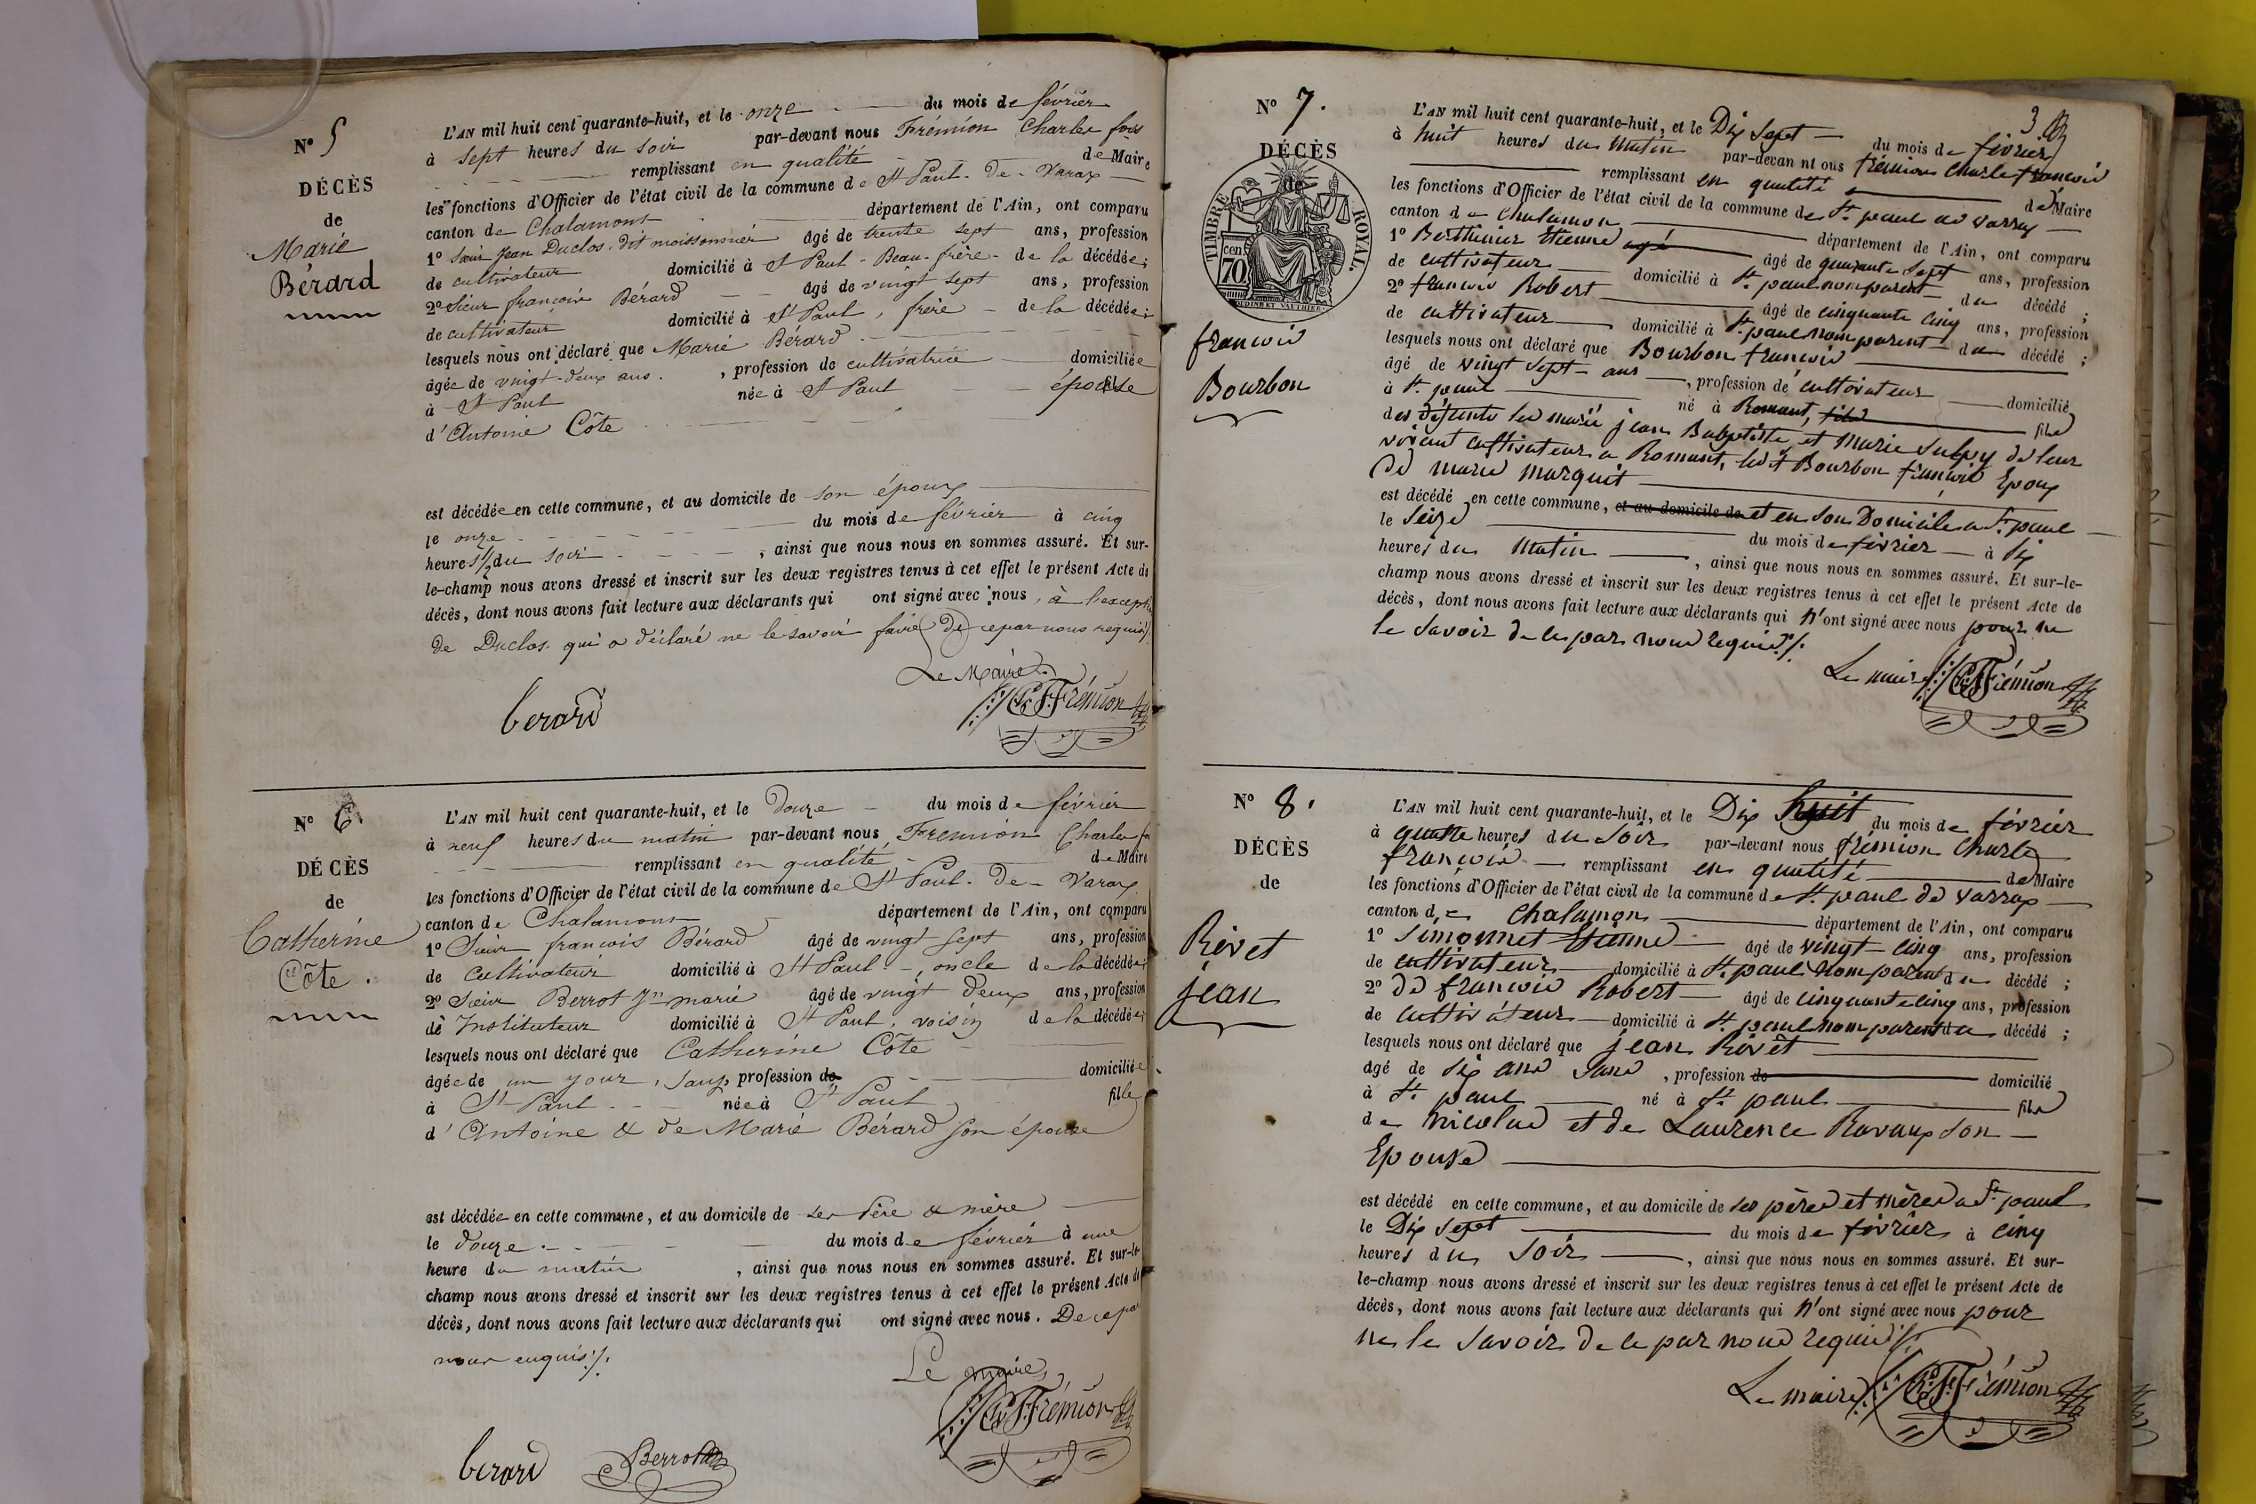 N° 5
DÉCÈS
de
Marie
Bérard
L'AN mil huit cent quarante-huit, et le onze du mois de février
à sept heures du soir par-devant nous Frémion Charles fois
remplissant en qualité de Maire
les fonctions d'Officier de l'état civil de la commune de St Paul-De-Varax
canton de Chalamont département de l'Ain, ont comparu
1° Sieur Jean Duclos dit moissonnier âgé de trente sept ans, profession
de cultivateur domicilié à St Paul - Beau-frère - de la décédée ;
2° Sieur françois Bérard âgé de vingt sept ans, profession
de cultivateur domicilié à St Paul, frère - de la décédée ;
lesquels nous ont déclaré que Marie Bérard
âgée de vingt-deux ans, profession de cultivatrice domiciliée
à St Paul née à St Paul épouse
d'Antoine Côte
est décédée en cette commune, et au domicile de son époux
le onze du mois de février à cinq
heures 1/2 du soir, ainsi que nous nous en sommes assuré. Et sur-
le-champ nous avons dressé et inscrit sur les deux registres tenus à cet effet le présent Acte de
décès, dont nous avons fait lecture aux déclarants qui ont signé avec nous, à l'except
de Duclos qui a déclaré ne le savoir faire de ce par nous requis ./.
Le Maire
berard C. F. Frémion
N° 6.
DÉCÈS
de
Catherine
Côte.
L'AN mil huit cent quarante-huit, et le douze du mois de février
à neuf heures du matin par-devant nous Fremion Charles foi
remplissant en qualité de Maire
les fonctions d'Officier de l'état civil de la commune de St Paul-De-Varax
canton de Chalamont département de l'Ain, ont comparu
1° Sieur françois Bérard âgé de vingt sept ans, profession
de cultivateur domicilié à St Paul -, oncle de la décédée ;
2° Sieur Berrot Jn marie âgé de vingt deux ans, profession
de Instituteur domicilié à St Paul, voisin de la décédée ;
lesquels nous ont déclaré que Catherine Côte
âgée de un jour, sans profession de domiciliée
à St Paul née à St Paul fille
d'Antoine & de Marie Bérard son épouse
est décédée en cette commune, et au domicile de ses père & mère
le douze du mois de février à une
heure du matin, ainsi que nous nous en sommes assuré. Et sur-le-
champ nous avons dressé et inscrit sur les deux registres tenus à cet effet le présent Acte de
décès, dont nous avons fait lecture aux déclarants qui ont signé avec nous. De ce par
nous enquis ./.
Le maire
C. F. Frémion
berard Berrot
3.
N° 7.
DÉCÈS
TIMBRE ROYAL.
70 cen
françois
Bourbon
L'AN mil huit cent quarante-huit, et le Dix sept du mois de février
à huit heures du matin par-devant nous frémion Charle françois
remplissant en qualité de Maire
les fonctions d'Officier de l'état civil de la commune de St. paul de varrax
canton de Chalamon département de l'Ain, ont comparu
1° Berthinier Etienne agé âgé de quarante sept ans, profession
de cultivateur domicilié à St. paul nom parent du décédé ;
2° françois Robert âgé de cinquante cinq ans, profession
de cultivateur domicilié à St. paul nom parent du décédé ;
lesquels nous ont déclaré que Bourbon françois
âgé de vingt sept ans, profession de cultivateur domicilié
à St. paul né à Romant, fils fils
des défunts les marié jean Babptiste et Marie Sulpy de leur
vivant cultivateur a Romant, ledit Bourbon françois Epoux
de marie marquit
est décédé en cette commune, et au domicile de et en son Domicile a St. paul
le seize du mois de février à six
heures du matin, ainsi que nous nous en sommes assuré. Et sur-le-
champ nous avons dressé et inscrit sur les deux registres tenus à cet effet le présent Acte de
décès, dont nous avons fait lecture aux déclarants qui n'ont signé avec nous pour ne
le savoir de ce par nous requis ./.
Le maire C. F. Frémion
N° 8.
DÉCÈS
de
Rivet
jean
L'AN mil huit cent quarante-huit, et le Dix huit du mois de février
à quatre heures du soir par-devant nous frémion Charle
françois remplissant en qualité de Maire
les fonctions d'Officier de l'état civil de la commune de St. paul de varrax
canton de Chalamon département de l'Ain, ont comparu
1° Simonnet Etienne âgé de vingt cinq ans, profession
de cultivateur domicilié à St. paul nom parent du décédé ;
2° de françois Robert âgé de cinquante cinq ans, profession
de cultivateur domicilié à St. paul nom parent du décédé ;
lesquels nous ont déclaré que jean Rivet
âgé de six ans sans, profession de domicilié
à St. paul né à St. paul fils
de nicolas et de Laurence Ravaux son
Epouse
est décédé en cette commune, et au domicile de ses pères et mères a St. paul
le Dix sept du mois de février à cinq
heures du soir, ainsi que nous nous en sommes assuré. Et sur-
le-champ nous avons dressé et inscrit sur les deux registres tenus à cet effet le présent Acte de
décès, dont nous avons fait lecture aux déclarants qui n'ont signé avec nous pour
ne le savoir de ce par nous requis ./.
Le maire C. F. Frémion